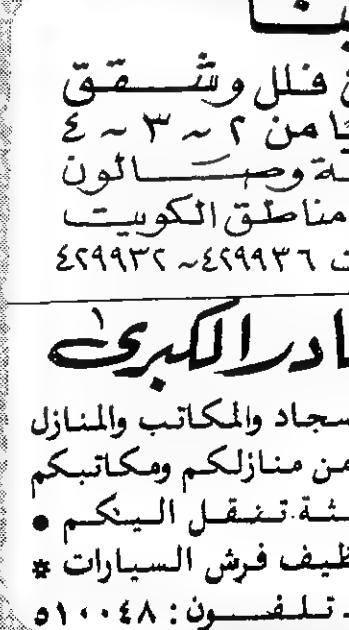 فلل وشقق
من ٢ ~ ٣ ~ ٤
وصالون
مناطق الكويت
ت ٤٢٩٩٣٦ ~ ٤٢٩٩٣٢
ادر الكبرى
سجاد والمكاتب والمنازل
من منازلكم ومكاتبكم
تنقل الينكم •
ظيف فرش السيارات *
تلفون : ٥١٠٠٤٨